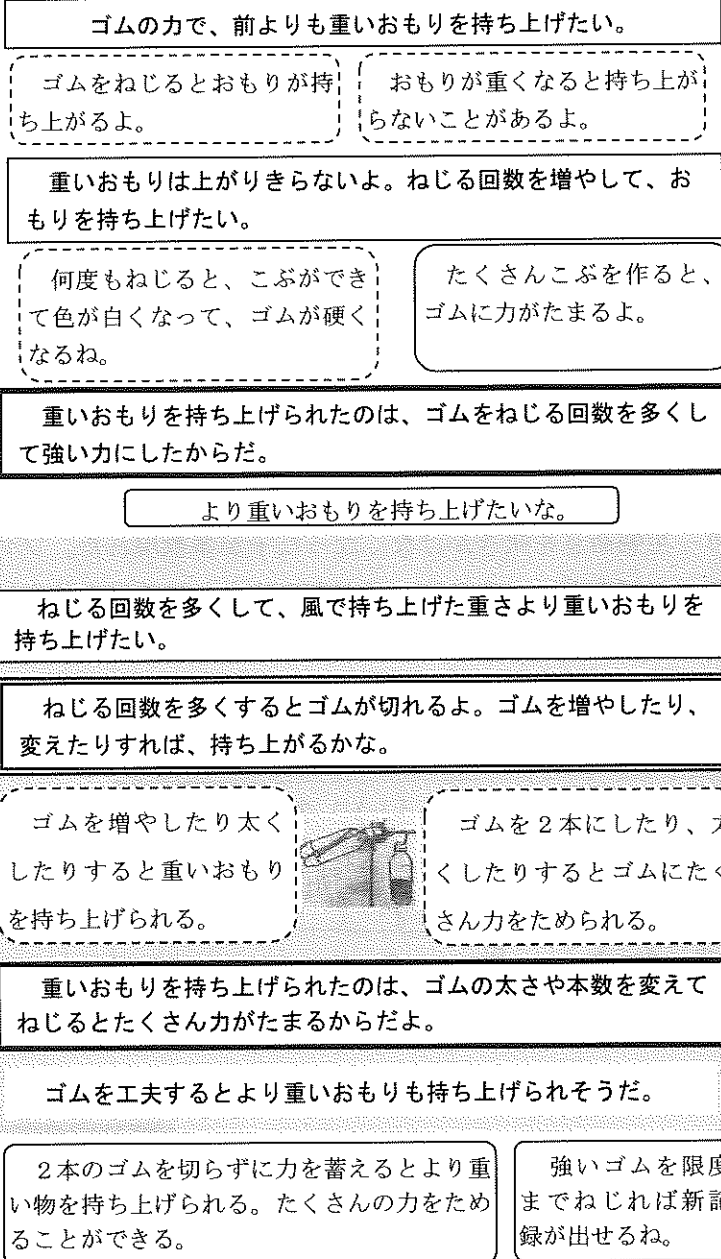 ゴムの力で、前よりも重いおもりを持ち上げたい。
ゴムをねじるとおもりが持
ち上がるよ。
おもりが重くなると持ち上が
らないことがあるよ。
重いおもりは上がりきらないよ。ねじる回数を増やして、お
もりを持ち上げたい。
何度もねじると、こぶができ
て色が白くなって、ゴムが硬く
なるね。
たくさんこぶを作ると、
ゴムに力がたまるよ。
重いおもりを持ち上げられたのは、ゴムをねじる回数を多くし
て強い力にしたからだ。
より重いおもりを持ち上げたいな。
ねじる回数を多くして、風で持ち上げた重さより重いおもりを
持ち上げたい。
ねじる回数を多くするとゴムが切れるよ。ゴムを増やしたり、
変えたりすれば、持ち上がるかな。
ゴムを増やしたり太く
したりすると重いおもり
を持ち上げられる。
ゴムを2本にしたり、
くしたりするとゴムにたく
さん力をためられる。
重いおもりを持ち上げられたのは、ゴムの太さや本数を変えて
ねじるとたくさん力がたまるからだよ。
ゴムを工夫するとより重いおもりも持ち上げられそうだ。
2本のゴムを切らずに力を蓄えるとより重
い物を持ち上げられる。たくさんの力をため
ることができる。
強いゴムを限度
までねじれば新
録が出せるね。